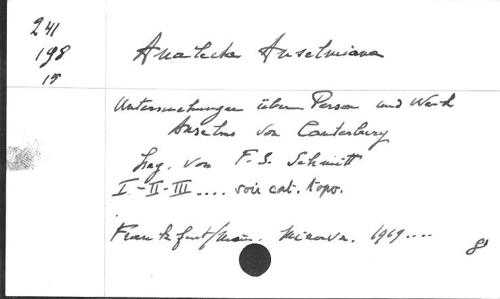 241
198
15
Analecta Anselmiana
Untersuchungen über Person und Werk
Anselms von Canterbury
hrg. von F.S. Schmitt
I-II-III.... voir cat. topo.
Frankfurt/Main. Minerva. 1969....
8°